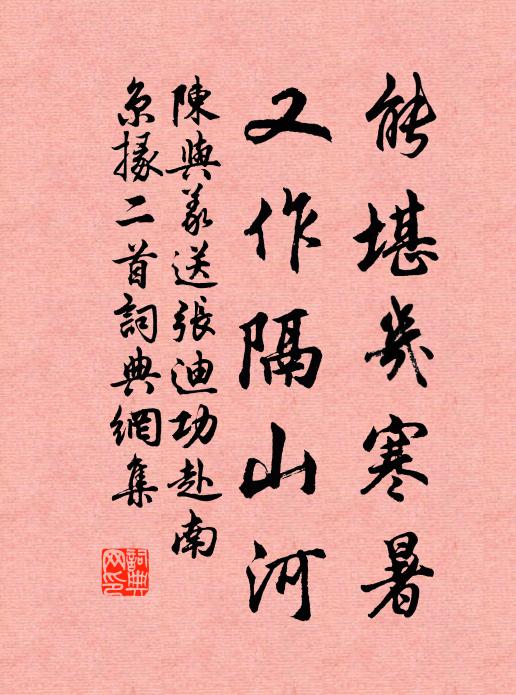 能堪幾寒暑
又作隔山河
陳與義送張迪功赴南
京掾二首詞典網集
詞典
网印